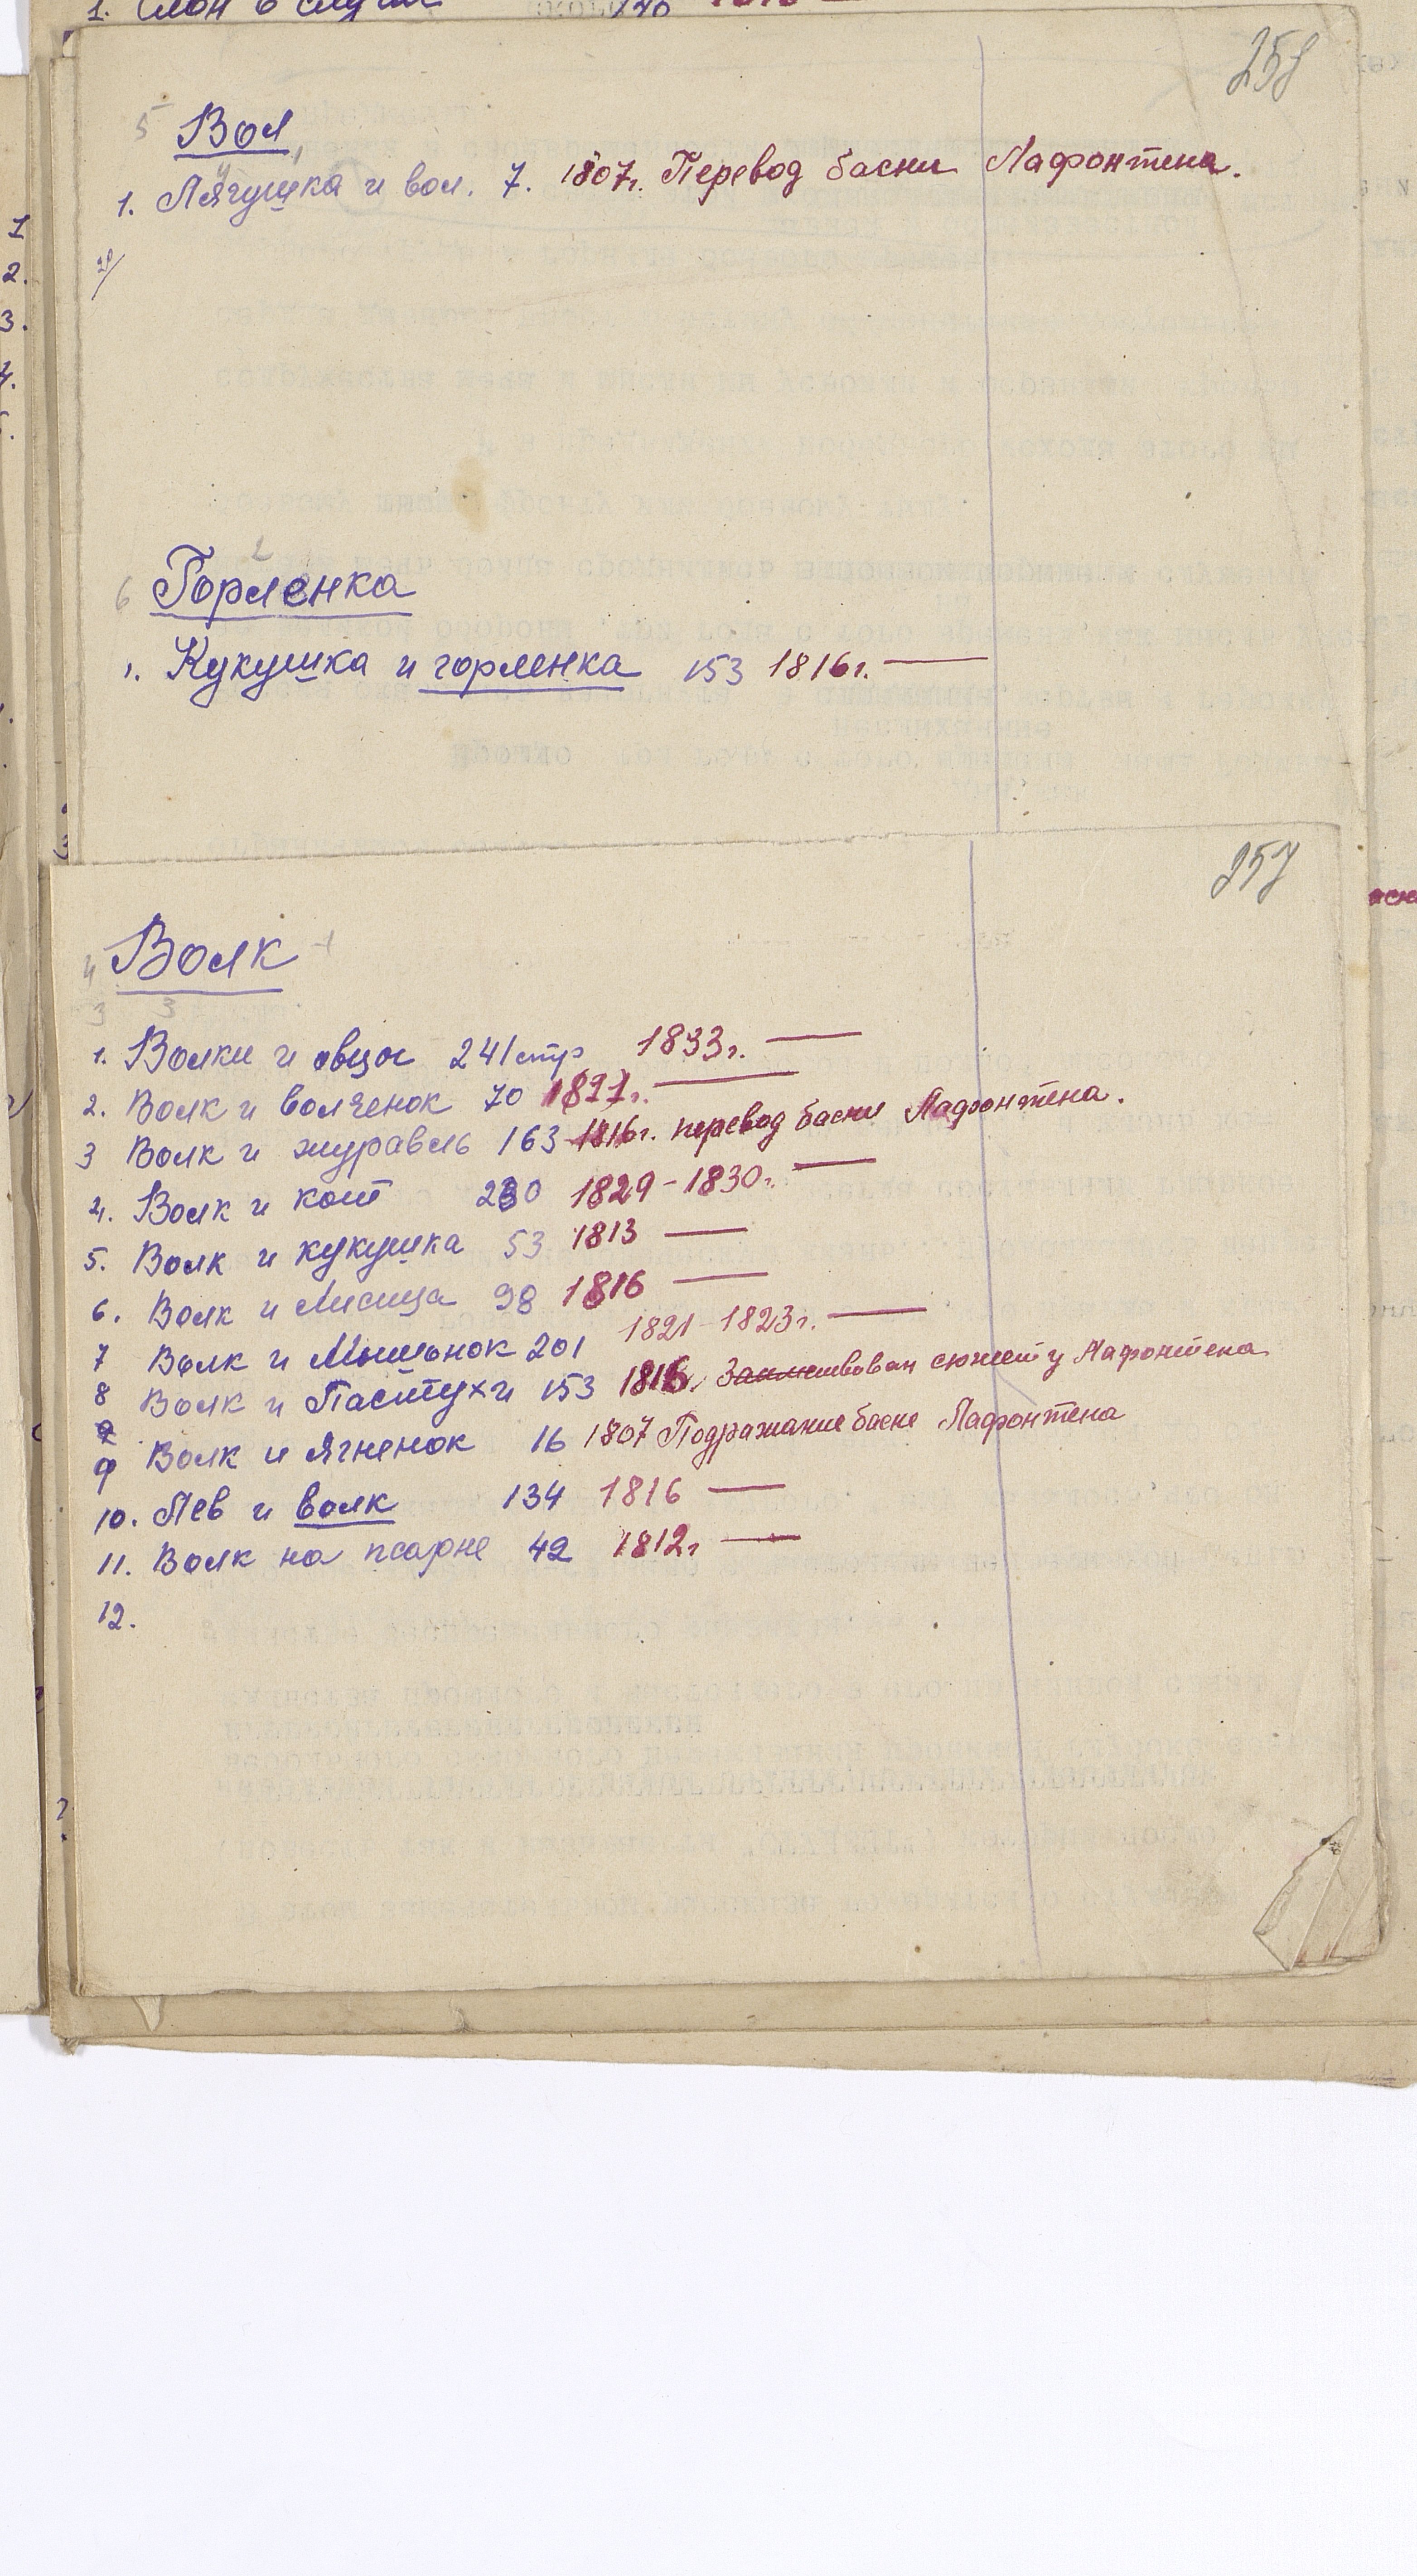 1. Слон в случае 1816 —
258
5 Вол
1. Лягушка и вол. 7. 1807г. Перевод басни Лафонтена.
6 Горленка
1. Кукушка и горленка 153 1816г. —
257
4 Волк
3 3
1. Волки и овцы 241 стр 1833г. —
2. Волк и волченок 70 —
3 Волк и журавль 163 1816г. перевод басни Лафонтена.
4. Волк и кот 230 1829-1830г. —
5. Волк и кукушка 53 1813 —
6. Волк и Лисица 98 1816 —
7 Волк и Мышонок 201 1821-1823г. —
8 Волк и Пастухи 153 1816. Заимствован сюжет у Лафонтена
9 Волк и Ягненок 16 1807 Подражание басне Лафонтена
10. Лев и волк 134 1816 —
11. Волк на псарне 42 1812г —
12.